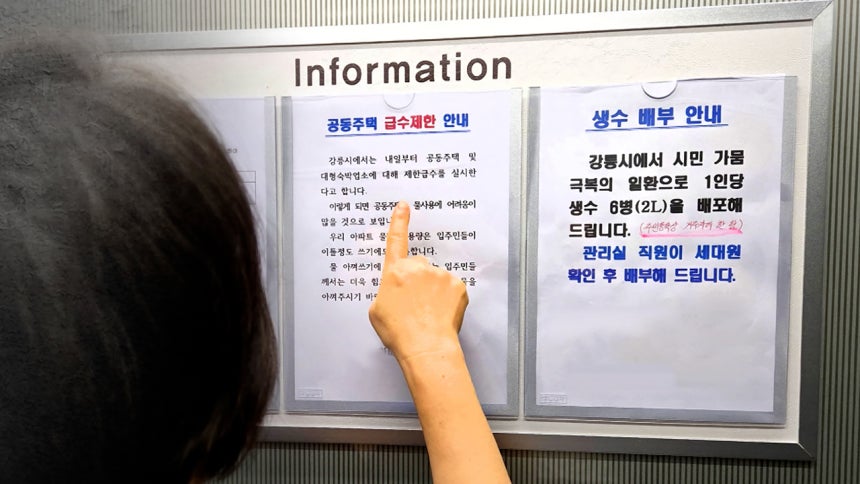 Information
공동주택 급수제한 안내
강릉시에서는 내일부터 공동주택 및
대형숙박업소에 대해 제한급수를 실시한
다고 합니다.
이렇게 되면 공동주택 물사용에 어려움이
많을 것으로 보입니
우리 아파트 물 용량은 입주민들이
이틀정도 쓰기에
합니다.
물 아껴쓰기에 입주민들
께서는 더욱 힘 을
아껴주시기 바
생수 배부 안내
강릉시에서 시민 가뭄
극복의 일환으로 1인당
생수 6병(2L)을 배포해
드립니다.
관리실 직원이 세대원
확인 후 배부해 드립니다.